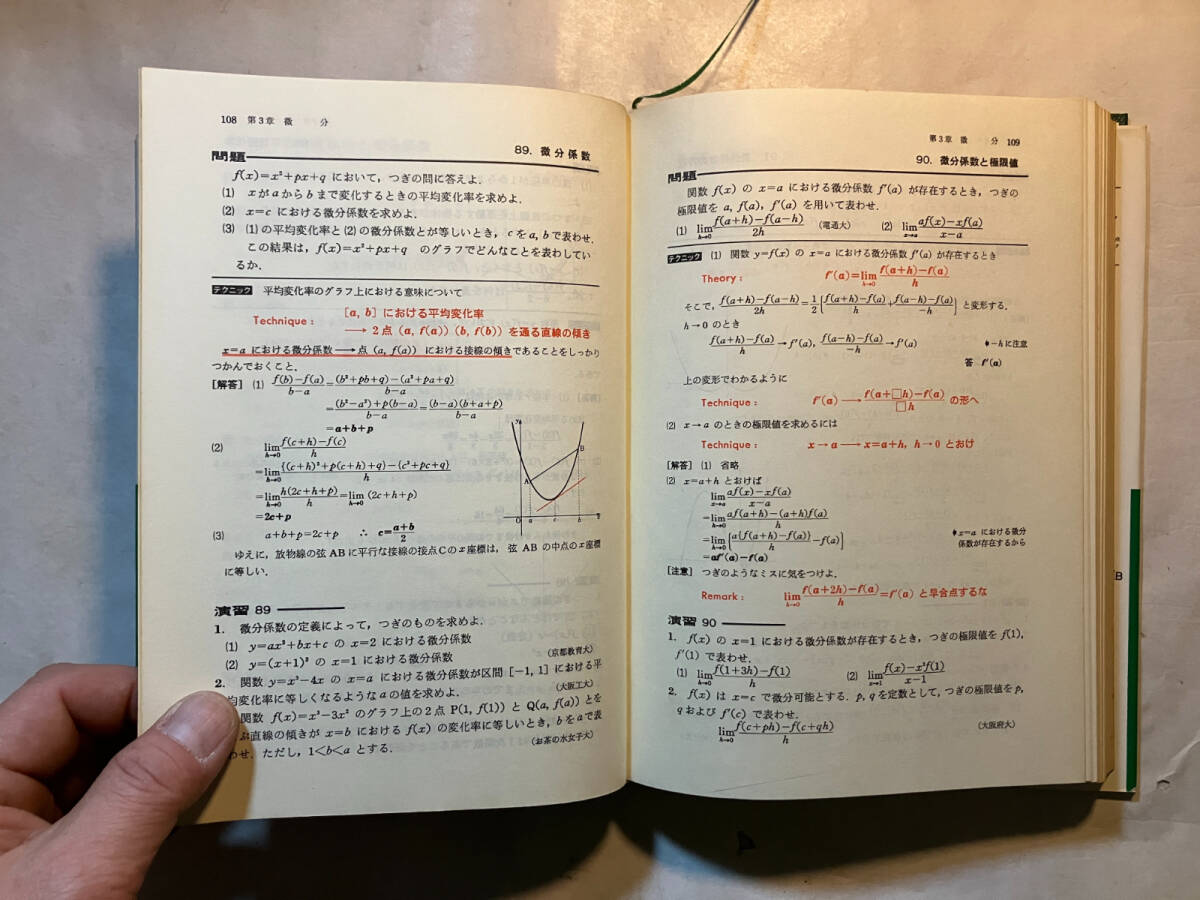 108 第3章 微 分
89. 微分係数
問題
f(x)=x²+px+q において，つぎの問に答えよ．
(1) xがaからbまで変化するときの平均変化率を求めよ．
(2) x=c における微分係数を求めよ．
(3) (1)の平均変化率と(2)の微分係数とが等しいとき，cをa, bで表わせ．
この結果は，f(x)=x²+px+q のグラフでどんなことを表わしてい
るか．
テクニック 平均変化率のグラフ上における意味について
Technique： [a, b]における平均変化率
⟶ 2点 (a, f(a)) (b, f(b)) を通る直線の傾き
x=a における微分係数⟶点 (a, f(a)) における接線の傾きであることをしっかり
つかんでおくこと．
[解答] (1) f(b)−f(a)/b−a=(b²+pb+q)−(a²+pa+q)/b−a
=(b²−a²)+p(b−a)/b−a=(b−a)(b+a+p)/b−a
=a+b+p
(2) lim h→0 f(c+h)−f(c)/h
=lim h→0 {(c+h)²+p(c+h)+q}−(c²+pc+q)/h
=lim h→0 h(2c+h+p)/h=lim h→0 (2c+h+p)
=2c+p
y
A
B
O a c b x
(3) a+b+p=2c+p ∴ c=a+b/2
ゆえに，放物線の弦ABに平行な接線の接点Cのx座標は，弦ABの中点のx座標
に等しい．
演習 89
1. 微分係数の定義によって，つぎのものを求めよ．
(1) y=ax²+bx+c の x=2 における微分係数
(2) y=(x+1)³ の x=1 における微分係数 (京都教育大)
2. 関数 y=x³−4x の x=a における微分係数が区間 [−1, 1] における平
均変化率に等しくなるようなaの値を求めよ． (大阪工大)
関数 f(x)=x³−3x² のグラフ上の2点 P(1, f(1)) と Q(a, f(a)) とを
ぶ直線の傾きが x=b における f(x) の変化率に等しいとき，bをaで表
わせ．ただし，1<b<a とする． (お茶の水女子大)
第3章 微 分 109
90. 微分係数と極限値
問題
関数 f(x) の x=a における微分係数 f′(a) が存在するとき，つぎの
極限値を a, f(a), f′(a) を用いて表わせ．
(1) lim h→0 f(a+h)−f(a−h)/2h (電通大) (2) lim x→a af(x)−xf(a)/x−a
テクニック (1) 関数 y=f(x) の x=a における微分係数 f′(a) が存在するとき
Theory： f′(a)=lim h→0 f(a+h)−f(a)/h
そこで，f(a+h)−f(a−h)/2h=1/2{f(a+h)−f(a)/h+f(a−h)−f(a)/−h} と変形する．
h→0 のとき
f(a+h)−f(a)/h→f′(a), f(a−h)−f(a)/−h→f′(a) ♦−hに注意
答 f′(a)
上の変形でわかるように
Technique： f′(a)⟶f(a+□h)−f(a)/□h の形へ
(2) x→a のときの極限値を求めるには
Technique： x→a⟶x=a+h, h→0 とおけ
[解答] (1) 省略
(2) x=a+h とおけば
lim x→a af(x)−xf(a)/x−a
=lim h→0 af(a+h)−(a+h)f(a)/h
=lim h→0 {a{f(a+h)−f(a)}/h−f(a)} ♦x=a における微分
係数が存在するから
=af′(a)−f(a)
[注意] つぎのようなミスに気をつけよ．
Remark： lim h→0 f(a+2h)−f(a)/h=f′(a) と早合点するな
演習 90
1. f(x) の x=1 における微分係数が存在するとき，つぎの極限値を f(1),
f′(1) で表わせ．
(1) lim h→0 f(1+3h)−f(1)/h (2) lim x→1 f(x)−x²f(1)/x−1
2. f(x) は x=c で微分可能とする．p, qを定数として，つぎの極限値をp,
q および f′(c) で表わせ．
lim h→0 f(c+ph)−f(c+qh)/h (大阪府大)
B